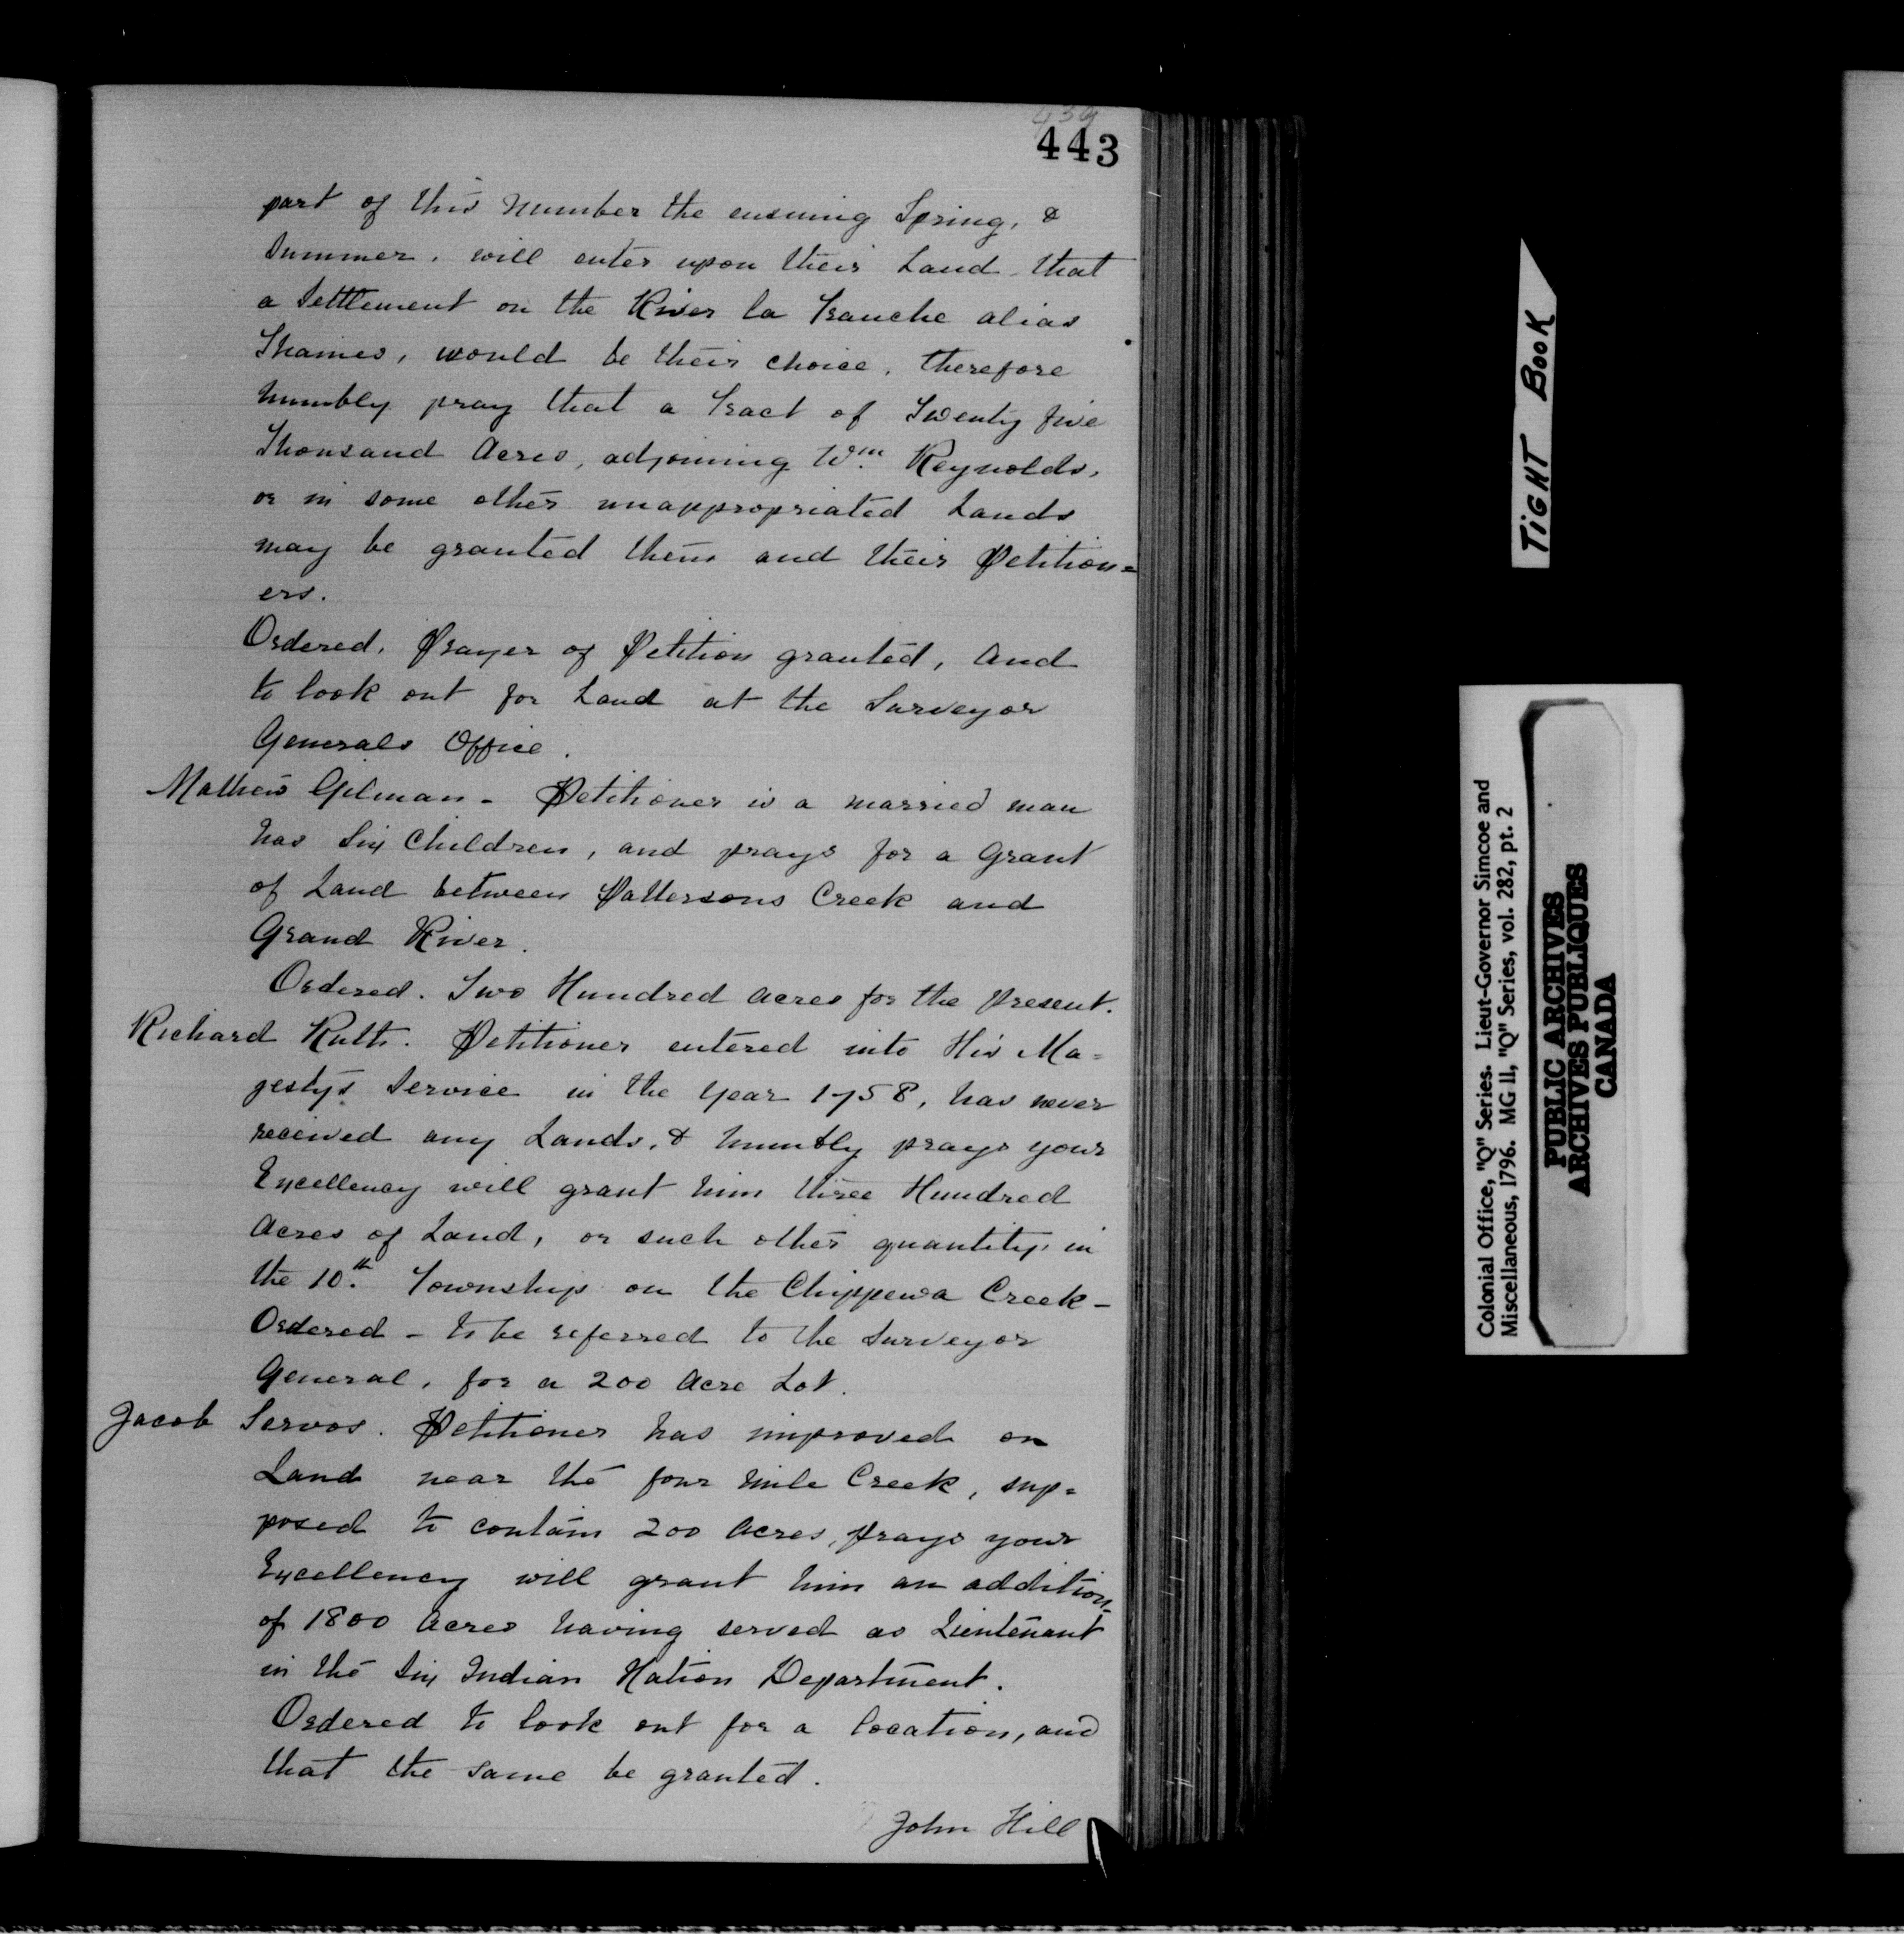 439
443
part of this Number the ensuing Spring, &
Summer, will enter upon their Land that
a Settlement on the River la Tranche alias
Thames, would be their choice, therefore
humbly pray that a Tract of Twenty five
Thousand Acres, adjoining Wm. Reynolds,
or in some other unappropriated Lands
may be granted them and their Petition=
ers.
Ordered, Prayer of Petition granted, and
to look out for Land at the Surveyor
Generals Office.
Mathew Gilman - Petitioner is a married man
has Six Children, and prays for a Grant
of Land between Pattersons Creek and
Grand River.
Ordered. Two Hundred acres for the present.
Richard Ruth. Petitioner entered into His Ma=
jesty's Service in the Year 1758, has never
received any Lands, & humbly prays your
Excellency will grant him three Hundred
Acres of Land, or such other quantity, in
the 10th. Township on the Chippewa Creek -
Ordered - to be referred to the Surveyor
General, for a 200 Acre Lot.
Jacob Servos. Petitioner has improved on
Land near the four Mile Creek, sup=
posed to contain 200 Acres, prays your
Excellency will grant him an addition-
of 1800 Acres having served as Lieutenant
in the Six Indian Nation Department.
Ordered to look out for a location, and
that the same be granted.
John Hill
TIGHT BOOK
Colonial Office, "Q" Series. Lieut-Governor Simcoe and
Miscellaneous, 1796. MG 11, "Q" Series, vol. 282, pt. 2
PUBLIC ARCHIVES
ARCHIVES PUBLIQUES
CANADA